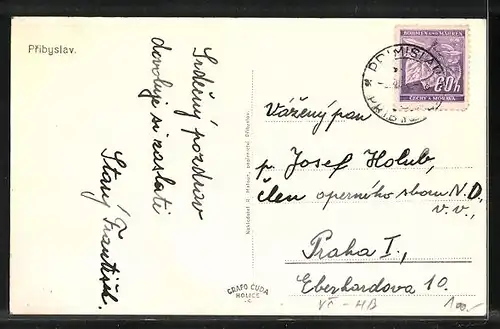 Přibyslav.
Srdečný pozdrav
dovoluje si zaslati
Starý František.
Nakladatel R.
Přibyslav.
GRAFO ČUDA
HOLICE
BÖHMEN UND MÄHREN
60h
ČECHY A MORAVA
PRIMISLAU
Vážený pan
p. Josef Holub,
člen operního sboru N.D.
v.v.,
Praha I.,
Eberhardova 10.
VČ-HB
100.-